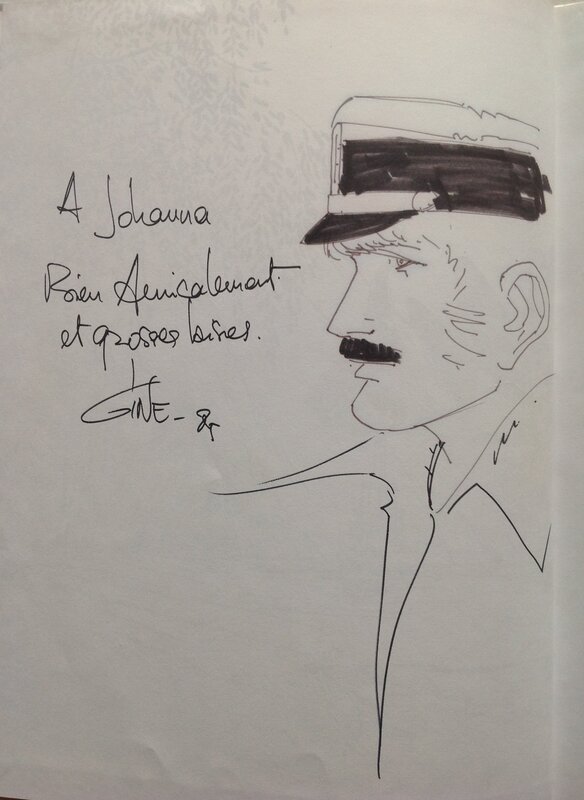 A Johanna
Bien Amicalement
et grosses bises.
GINE - 85